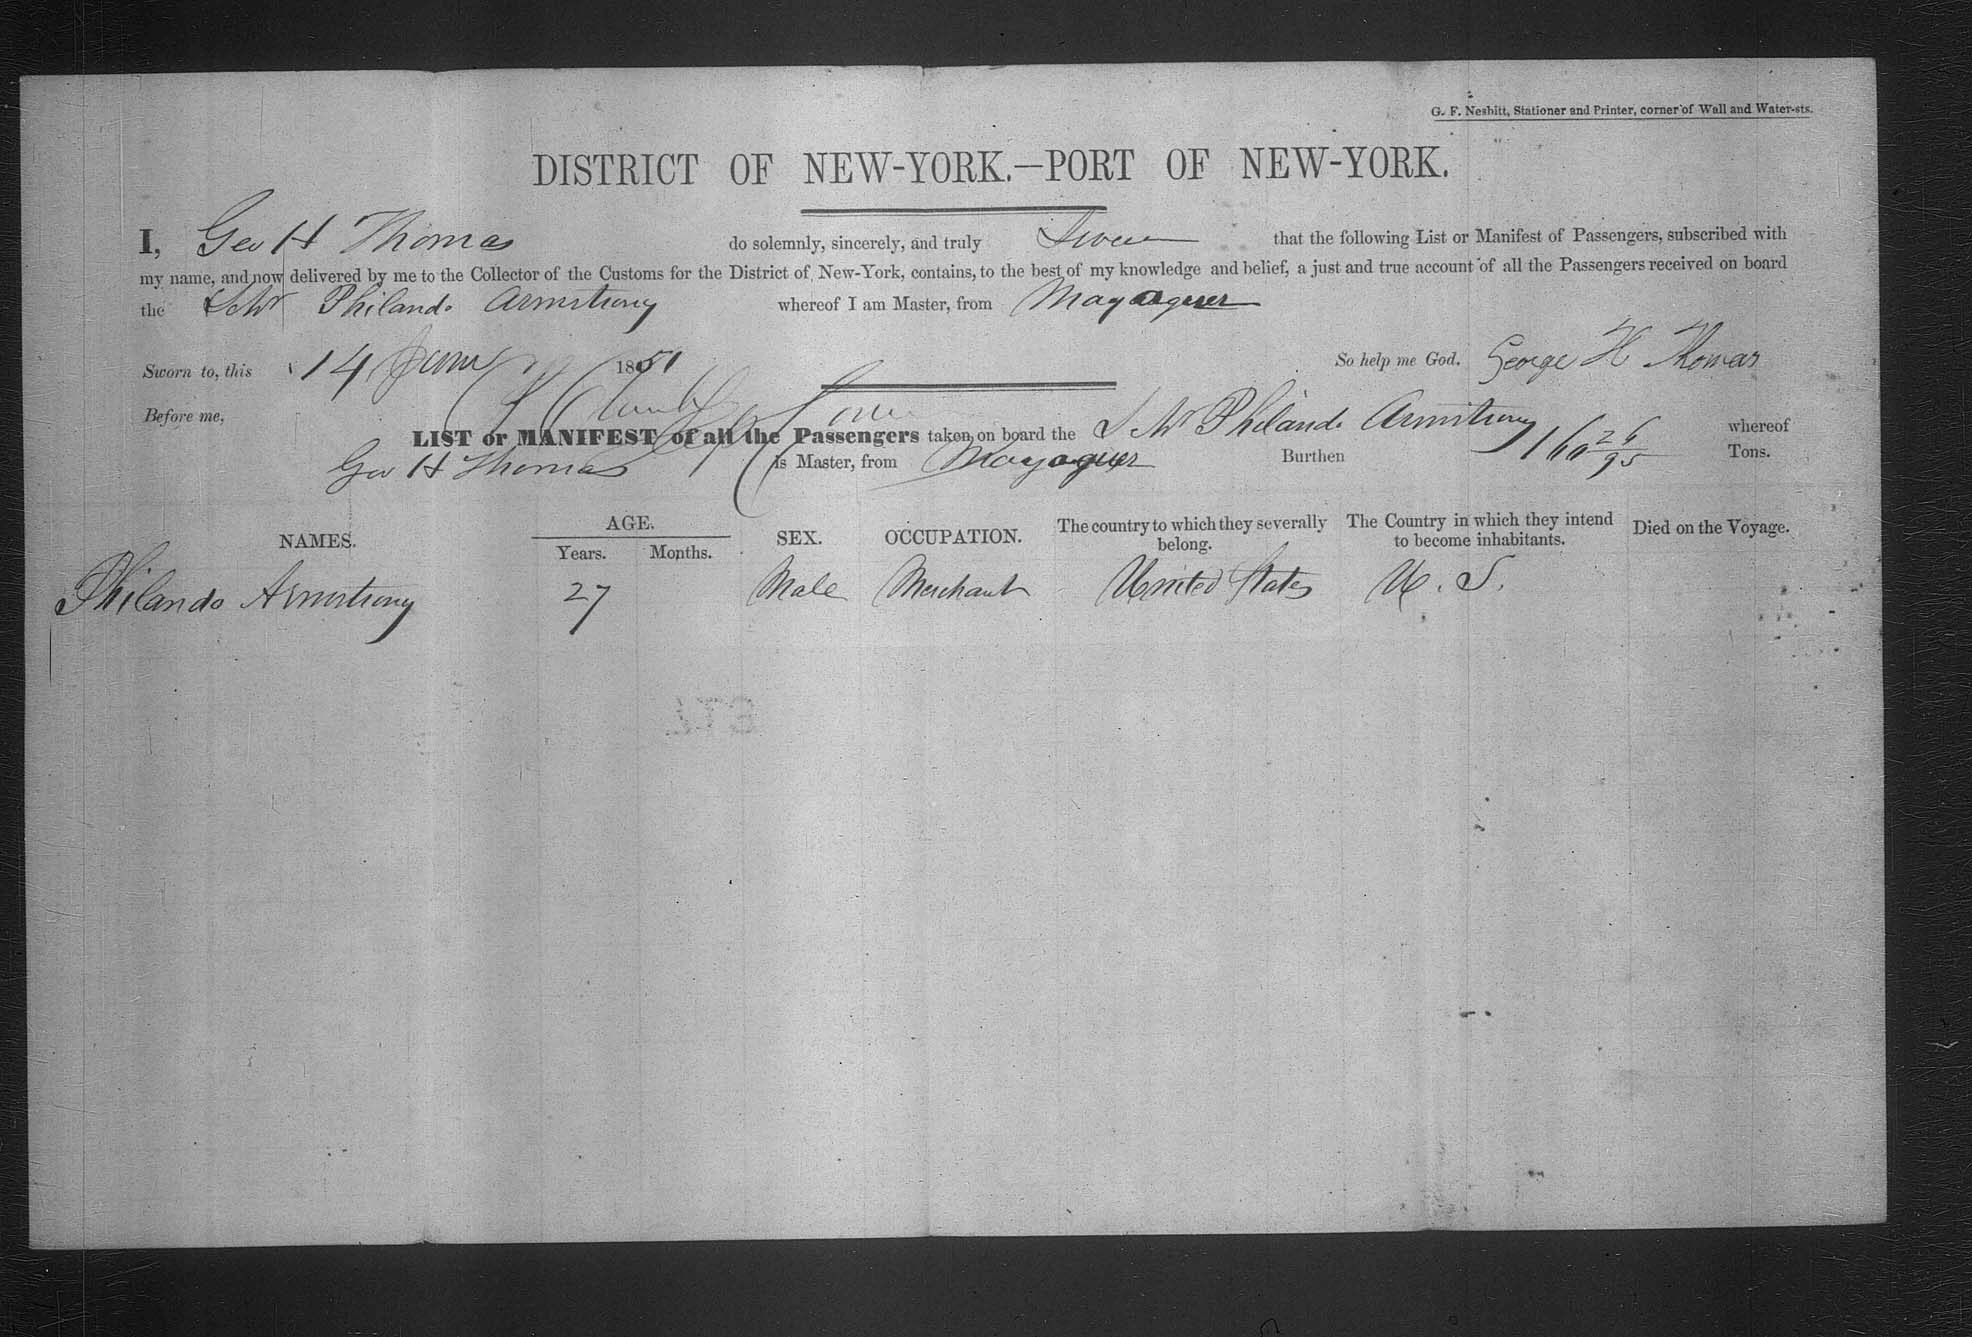 G. F. Nesbitt, Stationer and Printer, corner of Wall and Water-sts.
DISTRICT OF NEW-YORK.—PORT OF NEW-YORK.
I, Geo H Thomas do solemnly, sincerely, and truly Swear that the following List or Manifest of Passengers, subscribed with
my name, and now delivered by me to the Collector of the Customs for the District of New-York, contains, to the best of my knowledge and belief, a just and true account of all the Passengers received on board
the Schr Philando Armstrong whereof I am Master, from Mayaguez
Sworn to, this 14 June 1851 So help me God. George H Thomas
Before me,
LIST or MANIFEST of all the Passengers taken on board the Schr Philando Armstrong whereof
Geo H Thomas is Master, from Mayaguez Burthen 160 26/95 Tons.
NAMES. AGE. SEX. OCCUPATION. The country to which they severally belong. The Country in which they intend to become inhabitants. Died on the Voyage.
Years. Months.
Philando Armstrong 27 Male Merchant United States U. S.